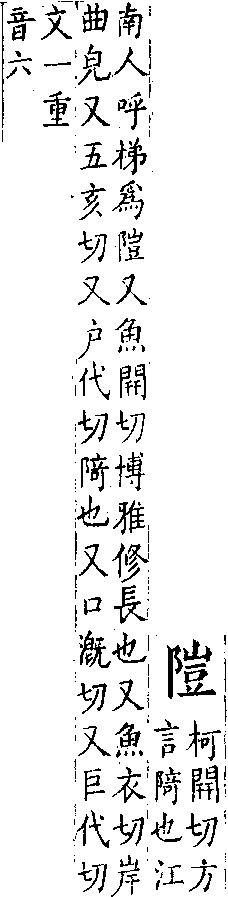 隑
柯開切方
言隑也江
南人呼梯爲隑又魚開切博雅修長也又魚衣切岸
曲皃又五亥切又戸代切隑也又口溉切又巨代切
文一重
音六